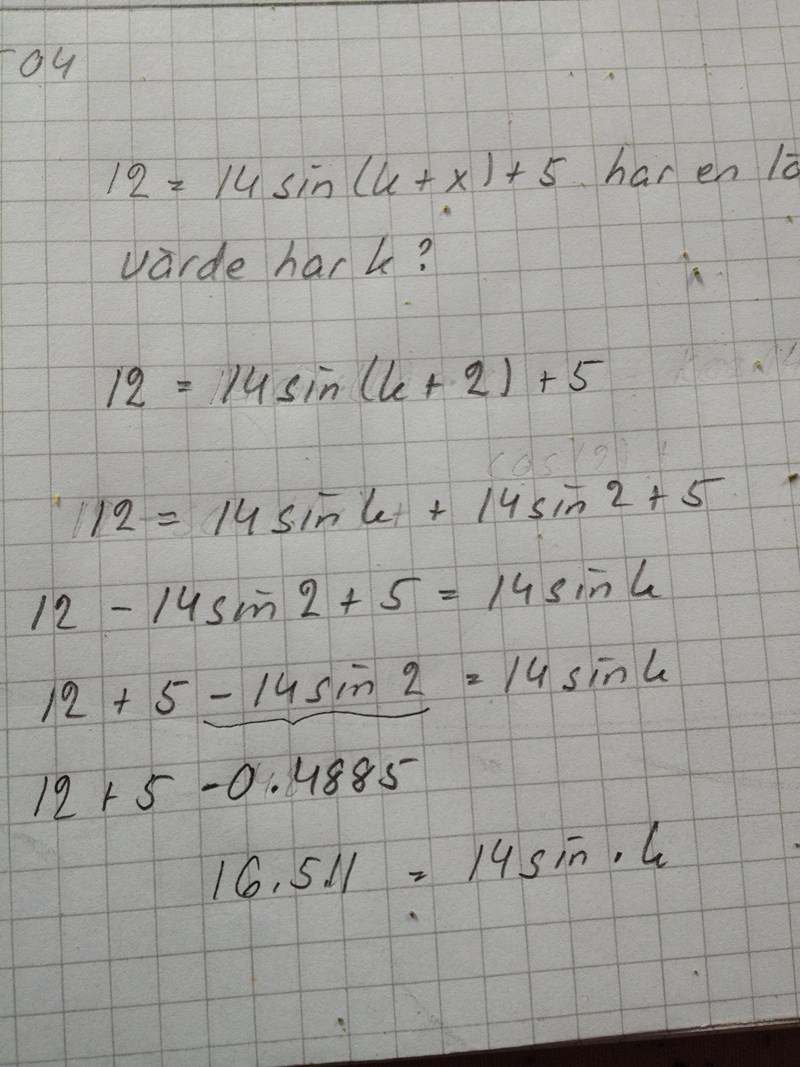 04
12 = 14 sin(k + x) + 5 har en
värde har k?
12 = 14 sin(k + 2) + 5
12 = 14 sin k + 14 sin 2 + 5
12 - 14 sin 2 + 5 = 14 sin k
12 + 5 - 14 sin 2 = 14 sin k
12 + 5 - 0.4885
16.511 = 14 sin . k